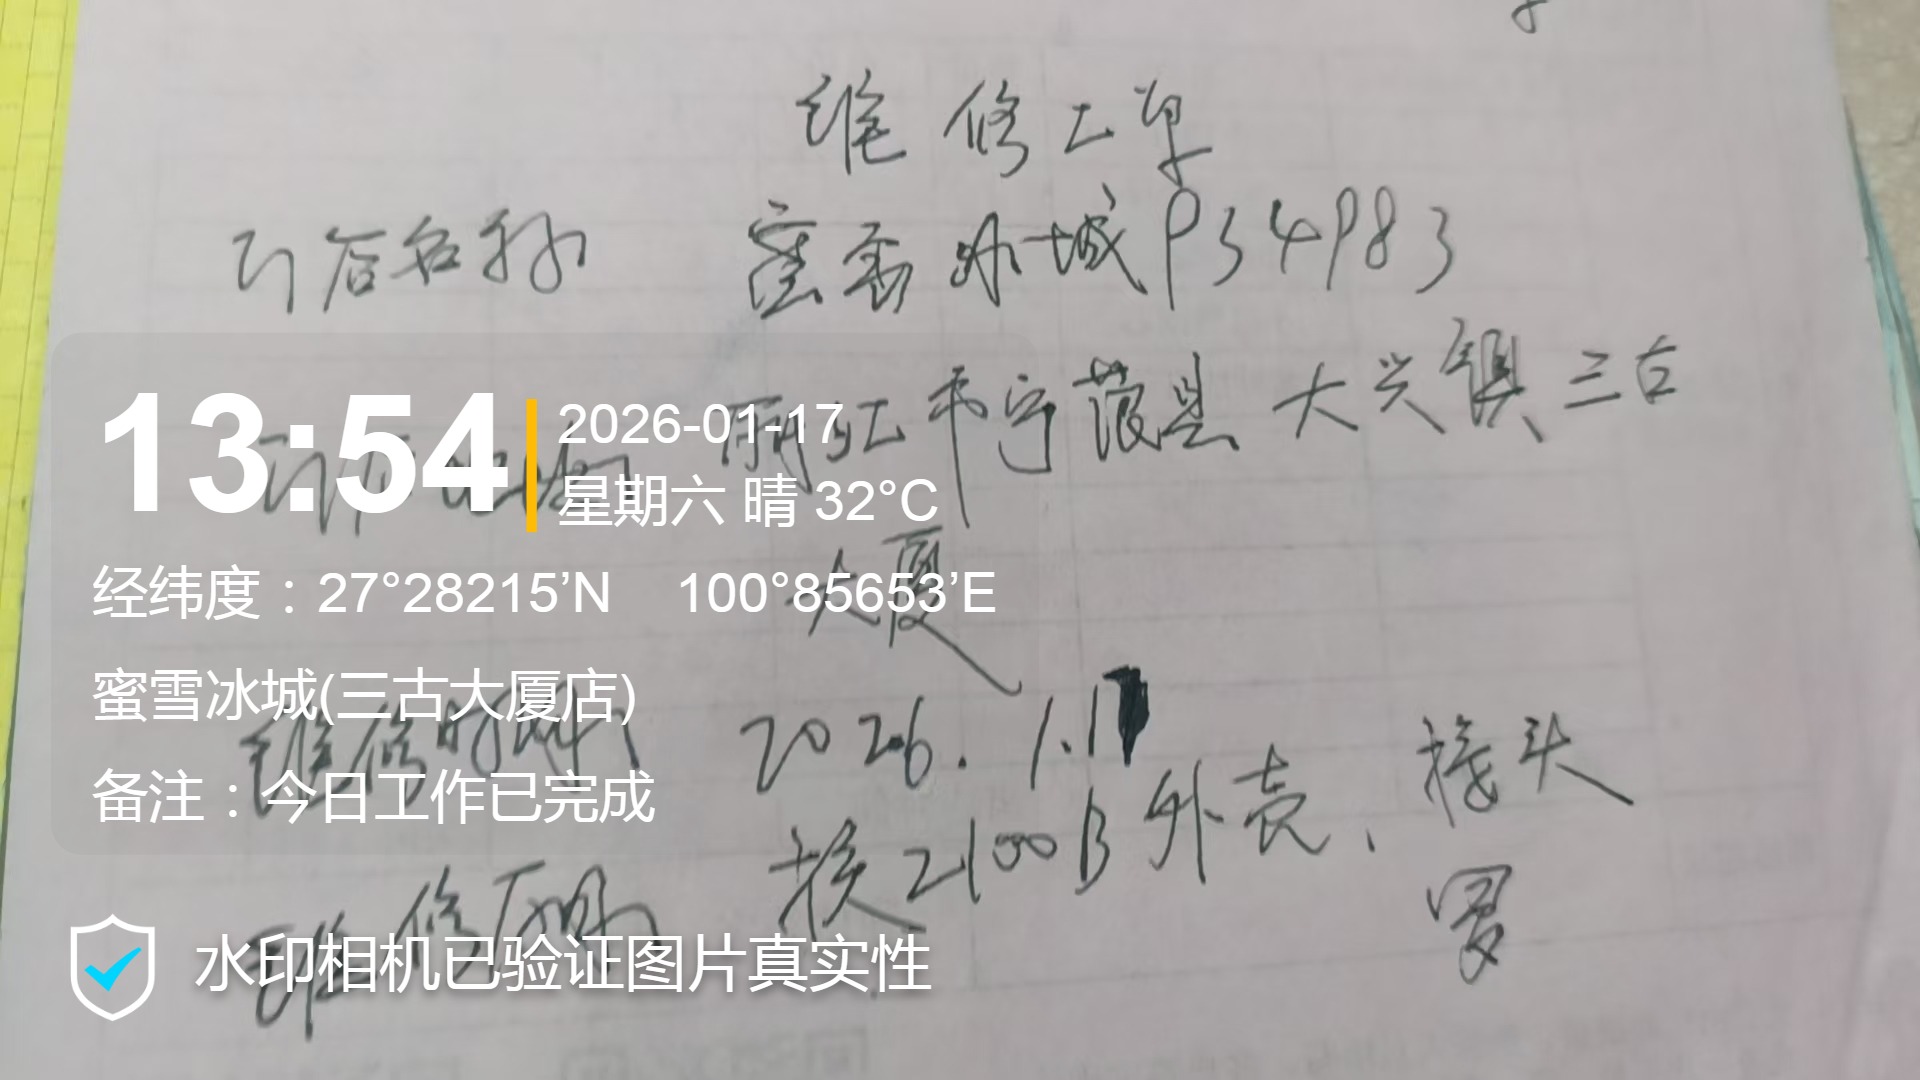 维修工单
门店名称 蜜雪冰城P34983
丽江市宁蒗县大兴镇三古
大厦
维修时间 2026.1.17
换2100B外壳、接头
维修
13:54
2026-01-17
星期六 晴 32°C
经纬度：27°28215’N 100°85653’E
蜜雪冰城(三古大厦店)
备注：今日工作已完成
水印相机已验证图片真实性